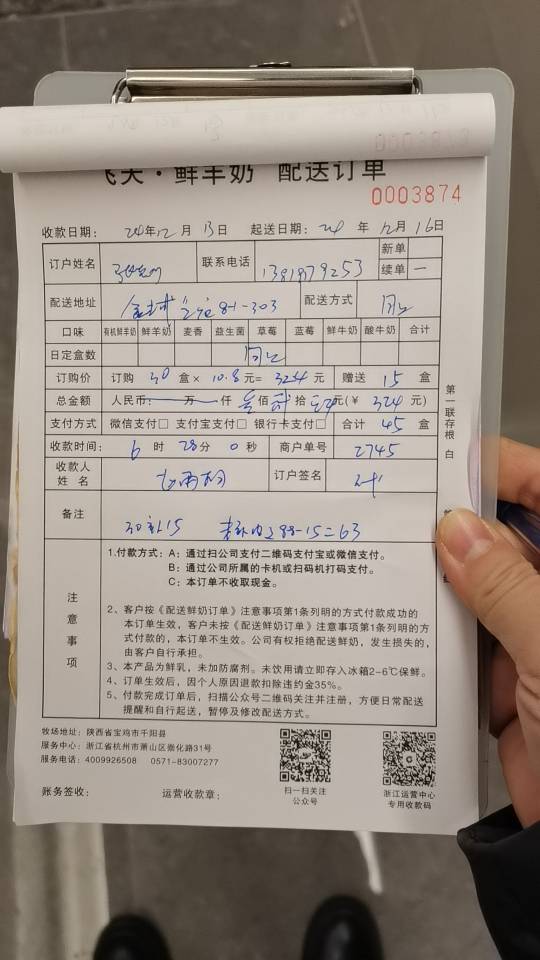 飞天·鲜羊奶 配送订单
0003874
收款日期: 24年12月13日 起送日期: 24年12月16日
订户姓名 联系电话 13818779253 新单
续单 一
配送地址 81-303 配送方式 同上
口味 有机鲜羊奶 鲜羊奶 麦香 益生菌 草莓 蓝莓 鲜牛奶 酸牛奶 合计
日定盒数 同上
订购价 订购 30 盒× 10.8元= 324元 赠送 15 盒
总金额 人民币: 万 仟 叁佰 贰拾 元(¥ 324 元)
支付方式 微信支付□ 支付宝支付□ 银行卡支付□ 合计 45 盒
收款时间: 6 时 28分 0 秒 商户单号 2745
收款人姓名 订户签名
备注 30 15 288-15=63
注意事项
1.付款方式: A: 通过扫公司支付二维码支付宝或微信支付。
B: 通过公司所属的卡机或扫码机打码支付。
C: 本订单不收取现金。
2、客户按《配送鲜奶订单》注意事项第1条列明的方式付款成功的
本订单生效，客户未按《配送鲜奶订单》注意事项第1条列明的方
式付款的，本订单不生效。公司有权拒绝配送鲜奶，发生损失的，
由客户自行承担。
3、本产品为鲜乳，未加防腐剂。未饮用请立即存入冰箱2-6℃保鲜。
4、订单生效后，因个人原因退款扣除违约金35%。
5、付款完成订单后，扫描公众号二维码关注并注册，方便日常配送
提醒和自行起送，暂停及修改配送方式。
第一联存根 白
牧场地址: 陕西省宝鸡市千阳县
服务中心: 浙江省杭州市萧山区崇化路31号
服务电话: 4009926508 0571-83007277
扫一扫关注
公众号
浙江运营中心
专用收款码
账务签收: 运营收款章: